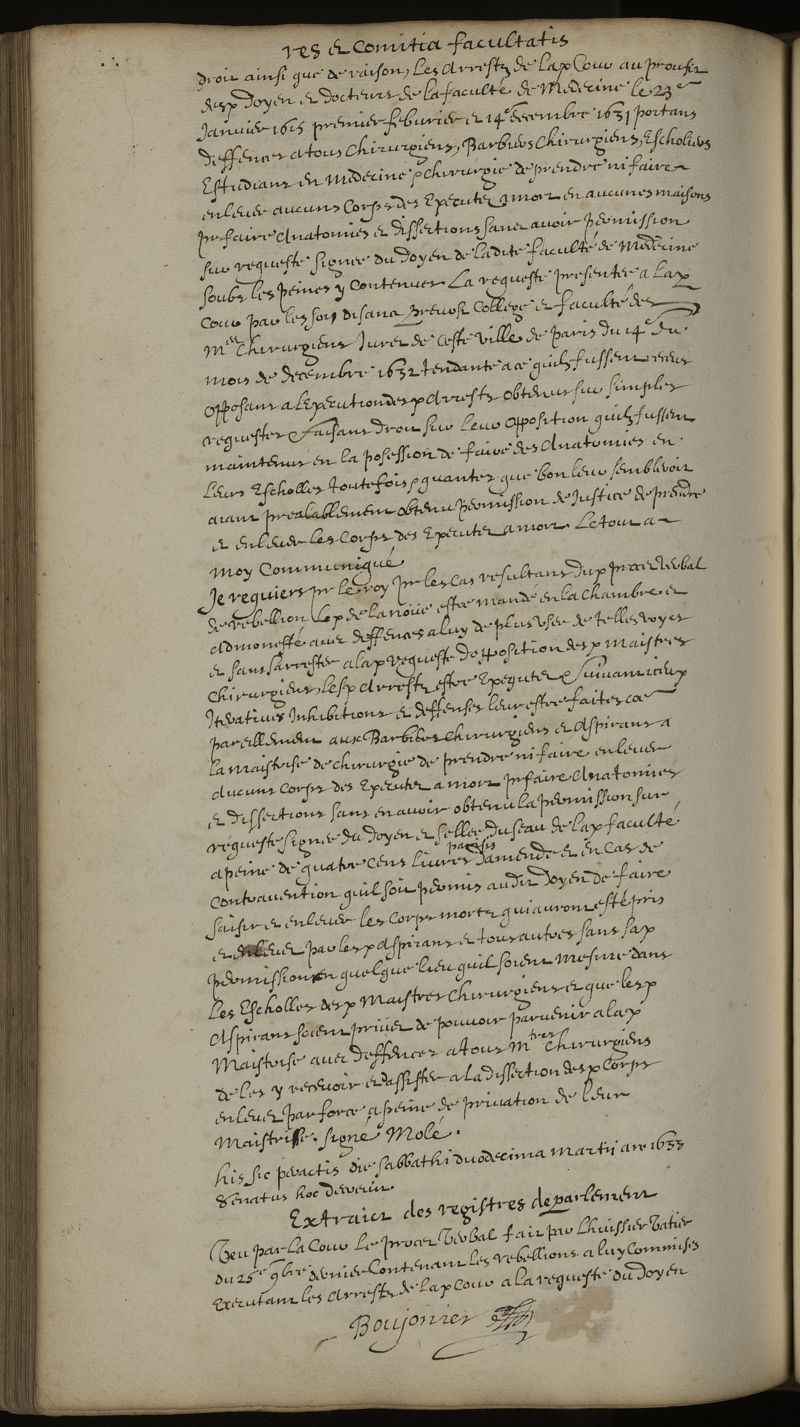 res et Comitia facultatis
droit ainsi que de raison, Les Arrestz de lad Cour au proufit
desd Doyen et docteurs de la faculté de Medecine le 23e
Janvier 1615 premier feburier et 14e decembre 1631 portans
deffences a tous Chirurgiens, Barbiers Chirurgiens, Escholiers
Estudians en Medecine et chirurgie de prendre ni faire
enlever aucuns Corps des Executez a mort en aucunes maisons
pr faire Anatomies et dissections sans avoir permission
sur requeste signee du doyen de ladite faculté de Medecine
soubs les peines y Contenues. La requeste presentee a lad
Cour par les soy disans Prevost College et faculté des
Mes Chirurgiens Jurez de ceste ville de Paris du 14e du
mois de decembre 1632 tendante a ce quilz fussent receus
opposans a lExecution desd Arrests obtenus sur simples
requestes & faisant droit sur leur opposition quilz fussent
maintenus en la posession de faire des Anatomies en
leurs Escholles toutefois et quantes que bon leur sembleroit
aiant prealablement obtenu permission de Justice de prendre
et enlever les Corps des Executez a mort. Le tout a
moy Communiqué
Je requiers pr le roy pr les cas resultans dud proces verbal
de rebellion led de la noüe estre mandé en la chambre et
admonesté avec deffences a luy de plus user de telles voyes
et sans sarrester a lad requeste dopposition desd maistres
Chirurgiens, lesd Arrestz estre Executez & suivant iceux
Iteratives Inhibitions et deffenses leur estre faites coe
pareillement aux Barbiers Chirurgiens et Aspirans a
la maistrise de chirurgie de prendre ni faire enlever
aucuns Corps des Executez a mort pr faire Anatomies
et dissections sans en avoir obtenu la permission sur
requeste signee du doyen et sellee du seau de lad faculté
a peine de quatre cens livres parisis damende et en cas de
Contravention quil soit permis audit doyen de faire
saisir et enlever les Corps mortz qui auront esté pris
et enlevez par lesd Aspirans et tous autres sans sad
permission en quelque lieu quil soient mesme dans
les Escholles desd Maistres Chirurgiens et que lesd
Aspirans soient privez de pouvoir parvenir a lad
Maistrise avec deffences a tous Mtres Chirurgiens
de les y recevoir et dassister a la dissection desd Corps
enlevez par force a peine de privation de leur
Maistrise. signé Molé.
his sic peractis die sabbathi duodecima martii an 1633
Senatus hoc decrevit.
Extraict des registres de parlement
Veu par la Cour le procez Verbal fait par Lhuissier Tatier
du 26e 9bre dernier Contenant les rebellions a luy Commises
Executant les Arrestz de lad Cour a la requeste du doyen
Boujonier